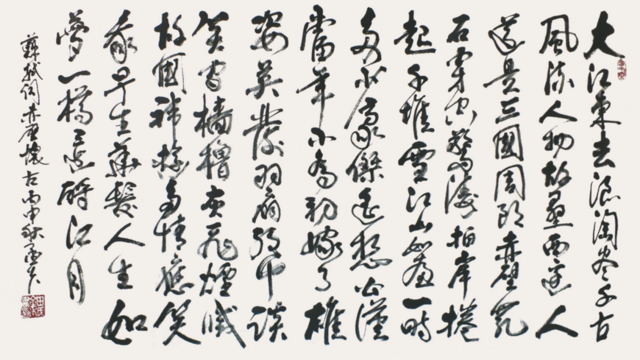 大江東去浪淘尽千古
風流人物故壘西邊人
道是三國周郎赤壁乱
石穿空驚濤拍岸捲
起千堆雪江山如畫一時
多少豪傑遥想公瑾
當年小喬初嫁了雄
姿英發羽扇綸巾談
笑間檣櫓灰飛煙滅
故國神遊多情應笑
我早生華髮人生如
夢一樽還酹江月
蘇軾词赤壁懷古丙申秋